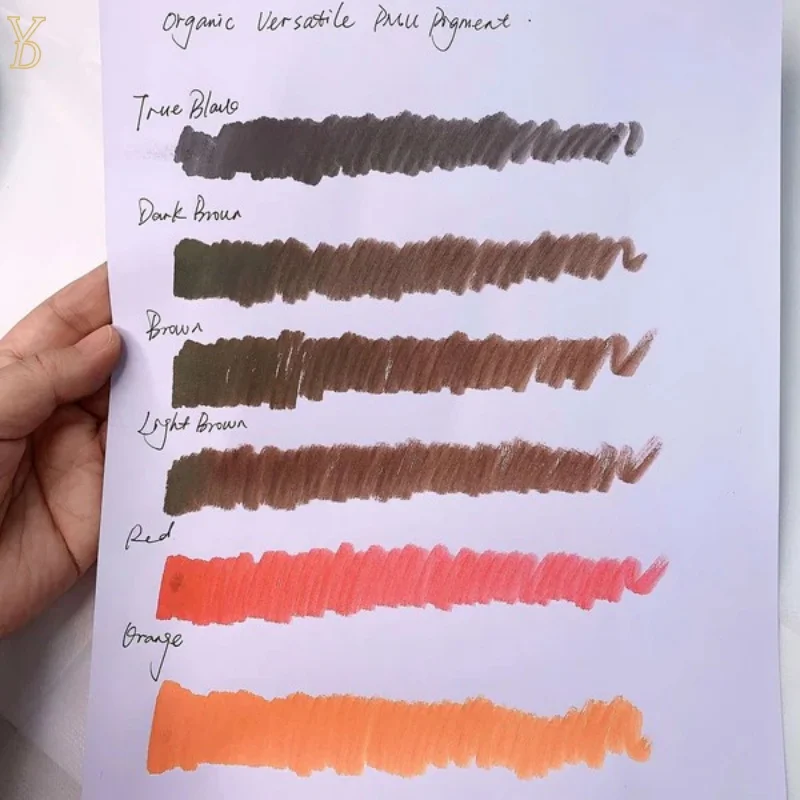 YD
Organic Versatile PMU Pigment.
True Blauo
Dark Broun
Brown
Light Brown
Red
Orange